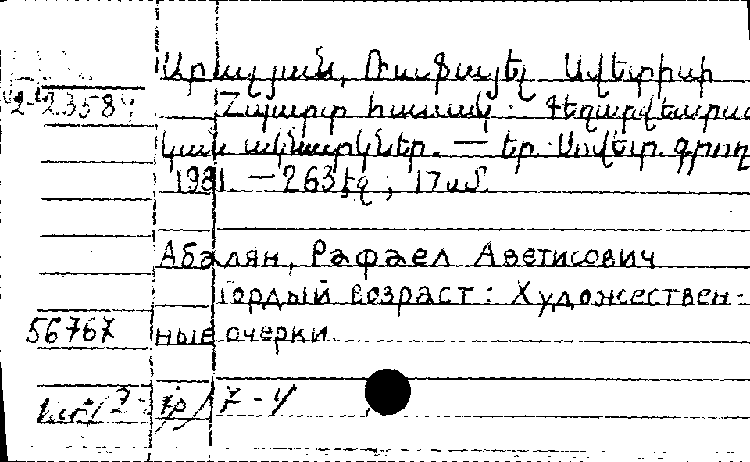 Աբալյան, Ռաֆայել Ավետիսի
23584 Հպարտ հասակ: Գեղարվեստա
կան ակնարկներ. — Եր. Սովետ. գրող
1981. — 263 էջ; 17 սմ
Абалян, Рафаел Аветисович
Гордый возраст: Художествен-
56767 ные очерки